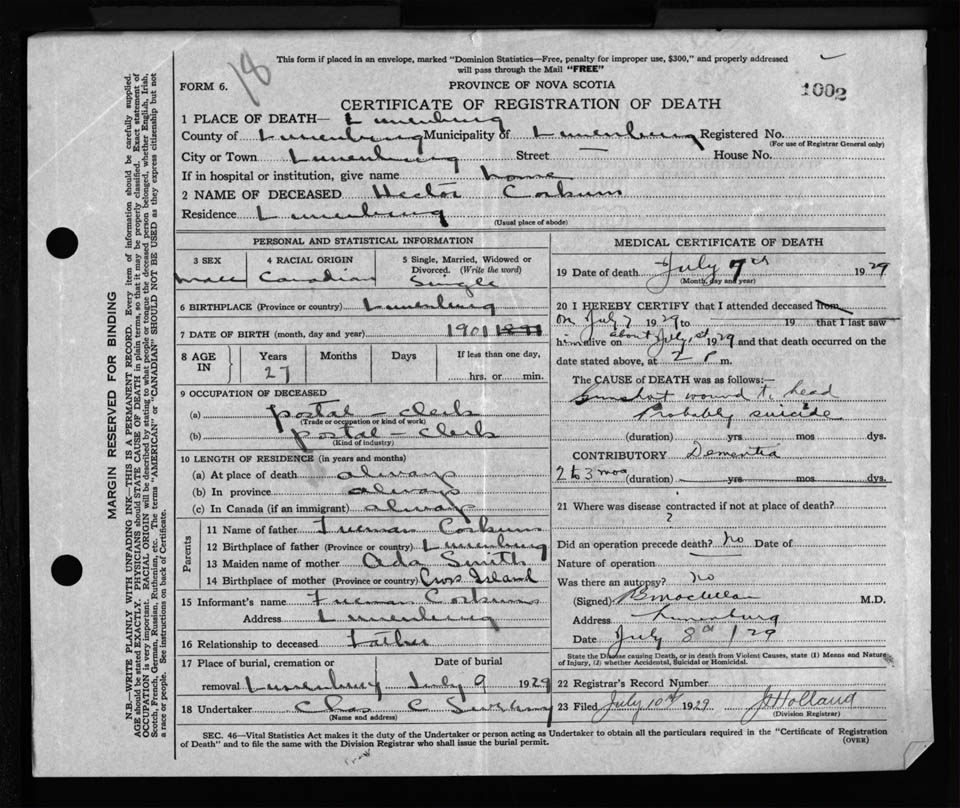 This form if placed in an envelope, marked "Dominion Statistics—Free, penalty for improper use, $300," and properly addressed
will pass through the Mail "FREE"
18
FORM 6.
PROVINCE OF NOVA SCOTIA
1002
CERTIFICATE OF REGISTRATION OF DEATH
1 PLACE OF DEATH— Lunenburg
County of Lunenburg Municipality of Lunenburg Registered No.
(For use of Registrar General only)
City or Town Lunenburg Street — House No.
If in hospital or institution, give name home
2 NAME OF DECEASED Hector Corkum
Residence Lunenburg
(Usual place of abode)
PERSONAL AND STATISTICAL INFORMATION
3 SEX
male
4 RACIAL ORIGIN
Canadian
5 Single, Married, Widowed or
Divorced. (Write the word)
Single
6 BIRTHPLACE (Province or country) Lunenburg
7 DATE OF BIRTH (month, day and year) 1901
8 AGE
IN
Years
27
Months
Days
If less than one day,
hrs. or min.
9 OCCUPATION OF DECEASED
(a) postal - clerk
(Trade or occupation or kind of work)
(b) postal - clerk
(Kind of industry)
10 LENGTH OF RESIDENCE (in years and months)
(a) At place of death always
(b) In province always
(c) In Canada (if an immigrant) always
Parents
11 Name of father Freeman Corkum
12 Birthplace of father (Province or country) Lunenburg
13 Maiden name of mother Ada Smith
14 Birthplace of mother (Province or country) Cross Island
15 Informant's name Freeman Corkum
Address Lunenburg
16 Relationship to deceased Father
17 Place of burial, cremation or
Date of burial
removal Lunenburg July 9 1929
18 Undertaker Chas C
(Name and address)
MEDICAL CERTIFICATE OF DEATH
19 Date of death July 7th 1929
(Month, day and year)
20 I HEREBY CERTIFY that I attended deceased from
on July 7 1929 to 19 that I last saw
him alive on about July 1st 1929 and that death occurred on the
date stated above, at 2 P m.
The CAUSE of DEATH was as follows:—
Gunshot wound to head
Probably suicide
(duration) yrs. mos dys.
CONTRIBUTORY Dementia
2 to 3 mos (duration) yrs mos dys.
21 Where was disease contracted if not at place of death?
?
Did an operation precede death? No Date of
Nature of operation
Was there an autopsy? no
(Signed) M.D.
Address Lunenburg
Date July 8th / 29
State the Disease causing Death, or in death from Violent Causes, state (1) Means and Nature
of Injury, (2) whether Accidental, Suicidal or Homicidal.
22 Registrar's Record Number
23 Filed July 10th 1929 Holland
(Division Registrar)
SEC. 46—Vital Statistics Act makes it the duty of the Undertaker or person acting as Undertaker to obtain all the particulars required in the "Certificate of Registration
of Death" and to file the same with the Division Registrar who shall issue the burial permit.
(OVER)
MARGIN RESERVED FOR BINDING
N.B.—WRITE PLAINLY WITH UNFADING INK—THIS IS A PERMANENT RECORD. Every item of information should be carefully supplied.
AGE should be stated EXACTLY. PHYSICIANS should STATE CAUSE OF DEATH in plain terms, so that it may be properly classified. Exact statement of
OCCUPATION is very important. RACIAL ORIGIN will be described by stating to what people or tongue the deceased person belonged, whether English, Irish,
Scotch, French, German, Russian, Ruthenian, etc. The terms "AMERICAN" or "CANADIAN" SHOULD NOT BE USED as they express citizenship but not
a race or people. See instructions on back of Certificate.